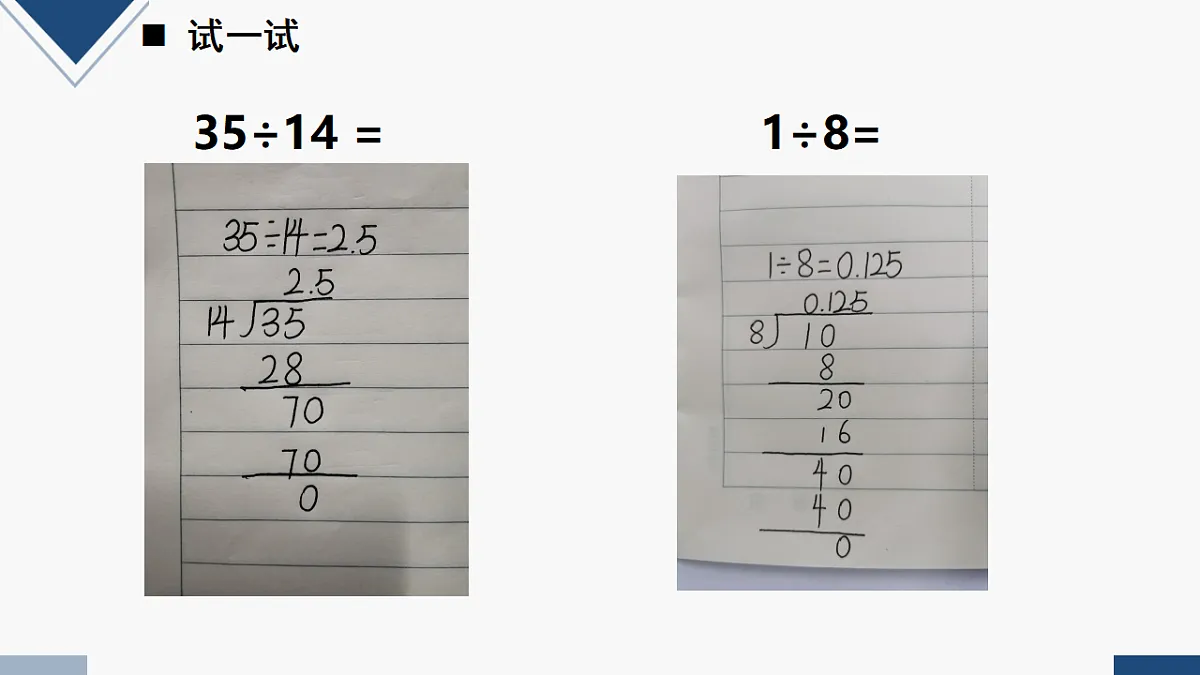 ■ 试一试
35÷14 =
35÷14=2.5
2.5
14 35
28
70
70
0
1÷8=
1÷8=0.125
0.125
8 10
8
20
16
40
40
0